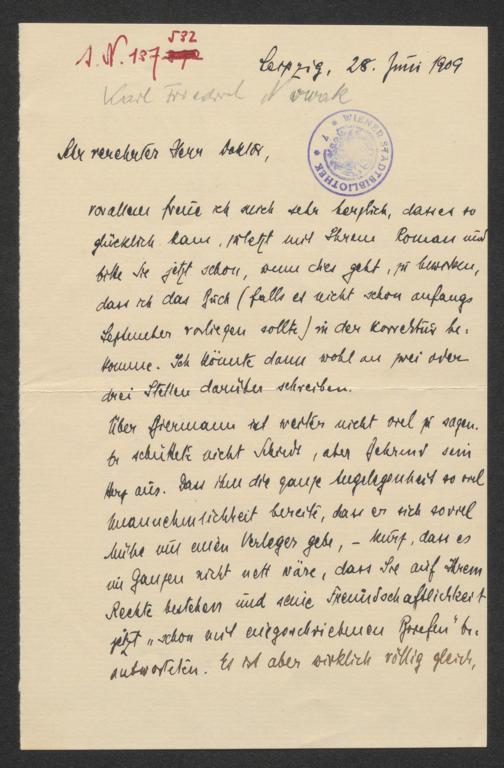 532
J. N. 137
Leipzig, 28. Juni 1909
Karl Friedrich Nowak
* WIENER STADTBIBLIOTHEK *
Sehr verehrter Herr Doktor,
vor allem freue ich mich sehr herzlich, dass es so
glücklich kam, jetzt mit Ihrem Roman und
bitte Sie jetzt schon, wenn dies geht, zu bewirken,
dass ich das Buch (falls es nicht schon anfangs
September vorliegen sollte) in der Korrektur be-
komme. Ich könnte dann wohl an zwei oder
drei Stellen darüber schreiben.
Über Biermann ist weiter nicht viel zu sagen.
Er schüttete nicht, aber Behrend sein
Herz aus. Dass ihm die ganze Angelegenheit so viel
Unannehmlichkeit bereite, dass er sich soviel
Mühe um einen Verleger gebe, – kurz, dass es
im Ganzen nicht nett wäre, dass Sie auf Ihrem
Rechte bestehen und seine Freundschaftlichkeit
jetzt „schon mit eingeschriebenen Briefen" be-
antworteten. Es ist aber wirklich völlig gleich,